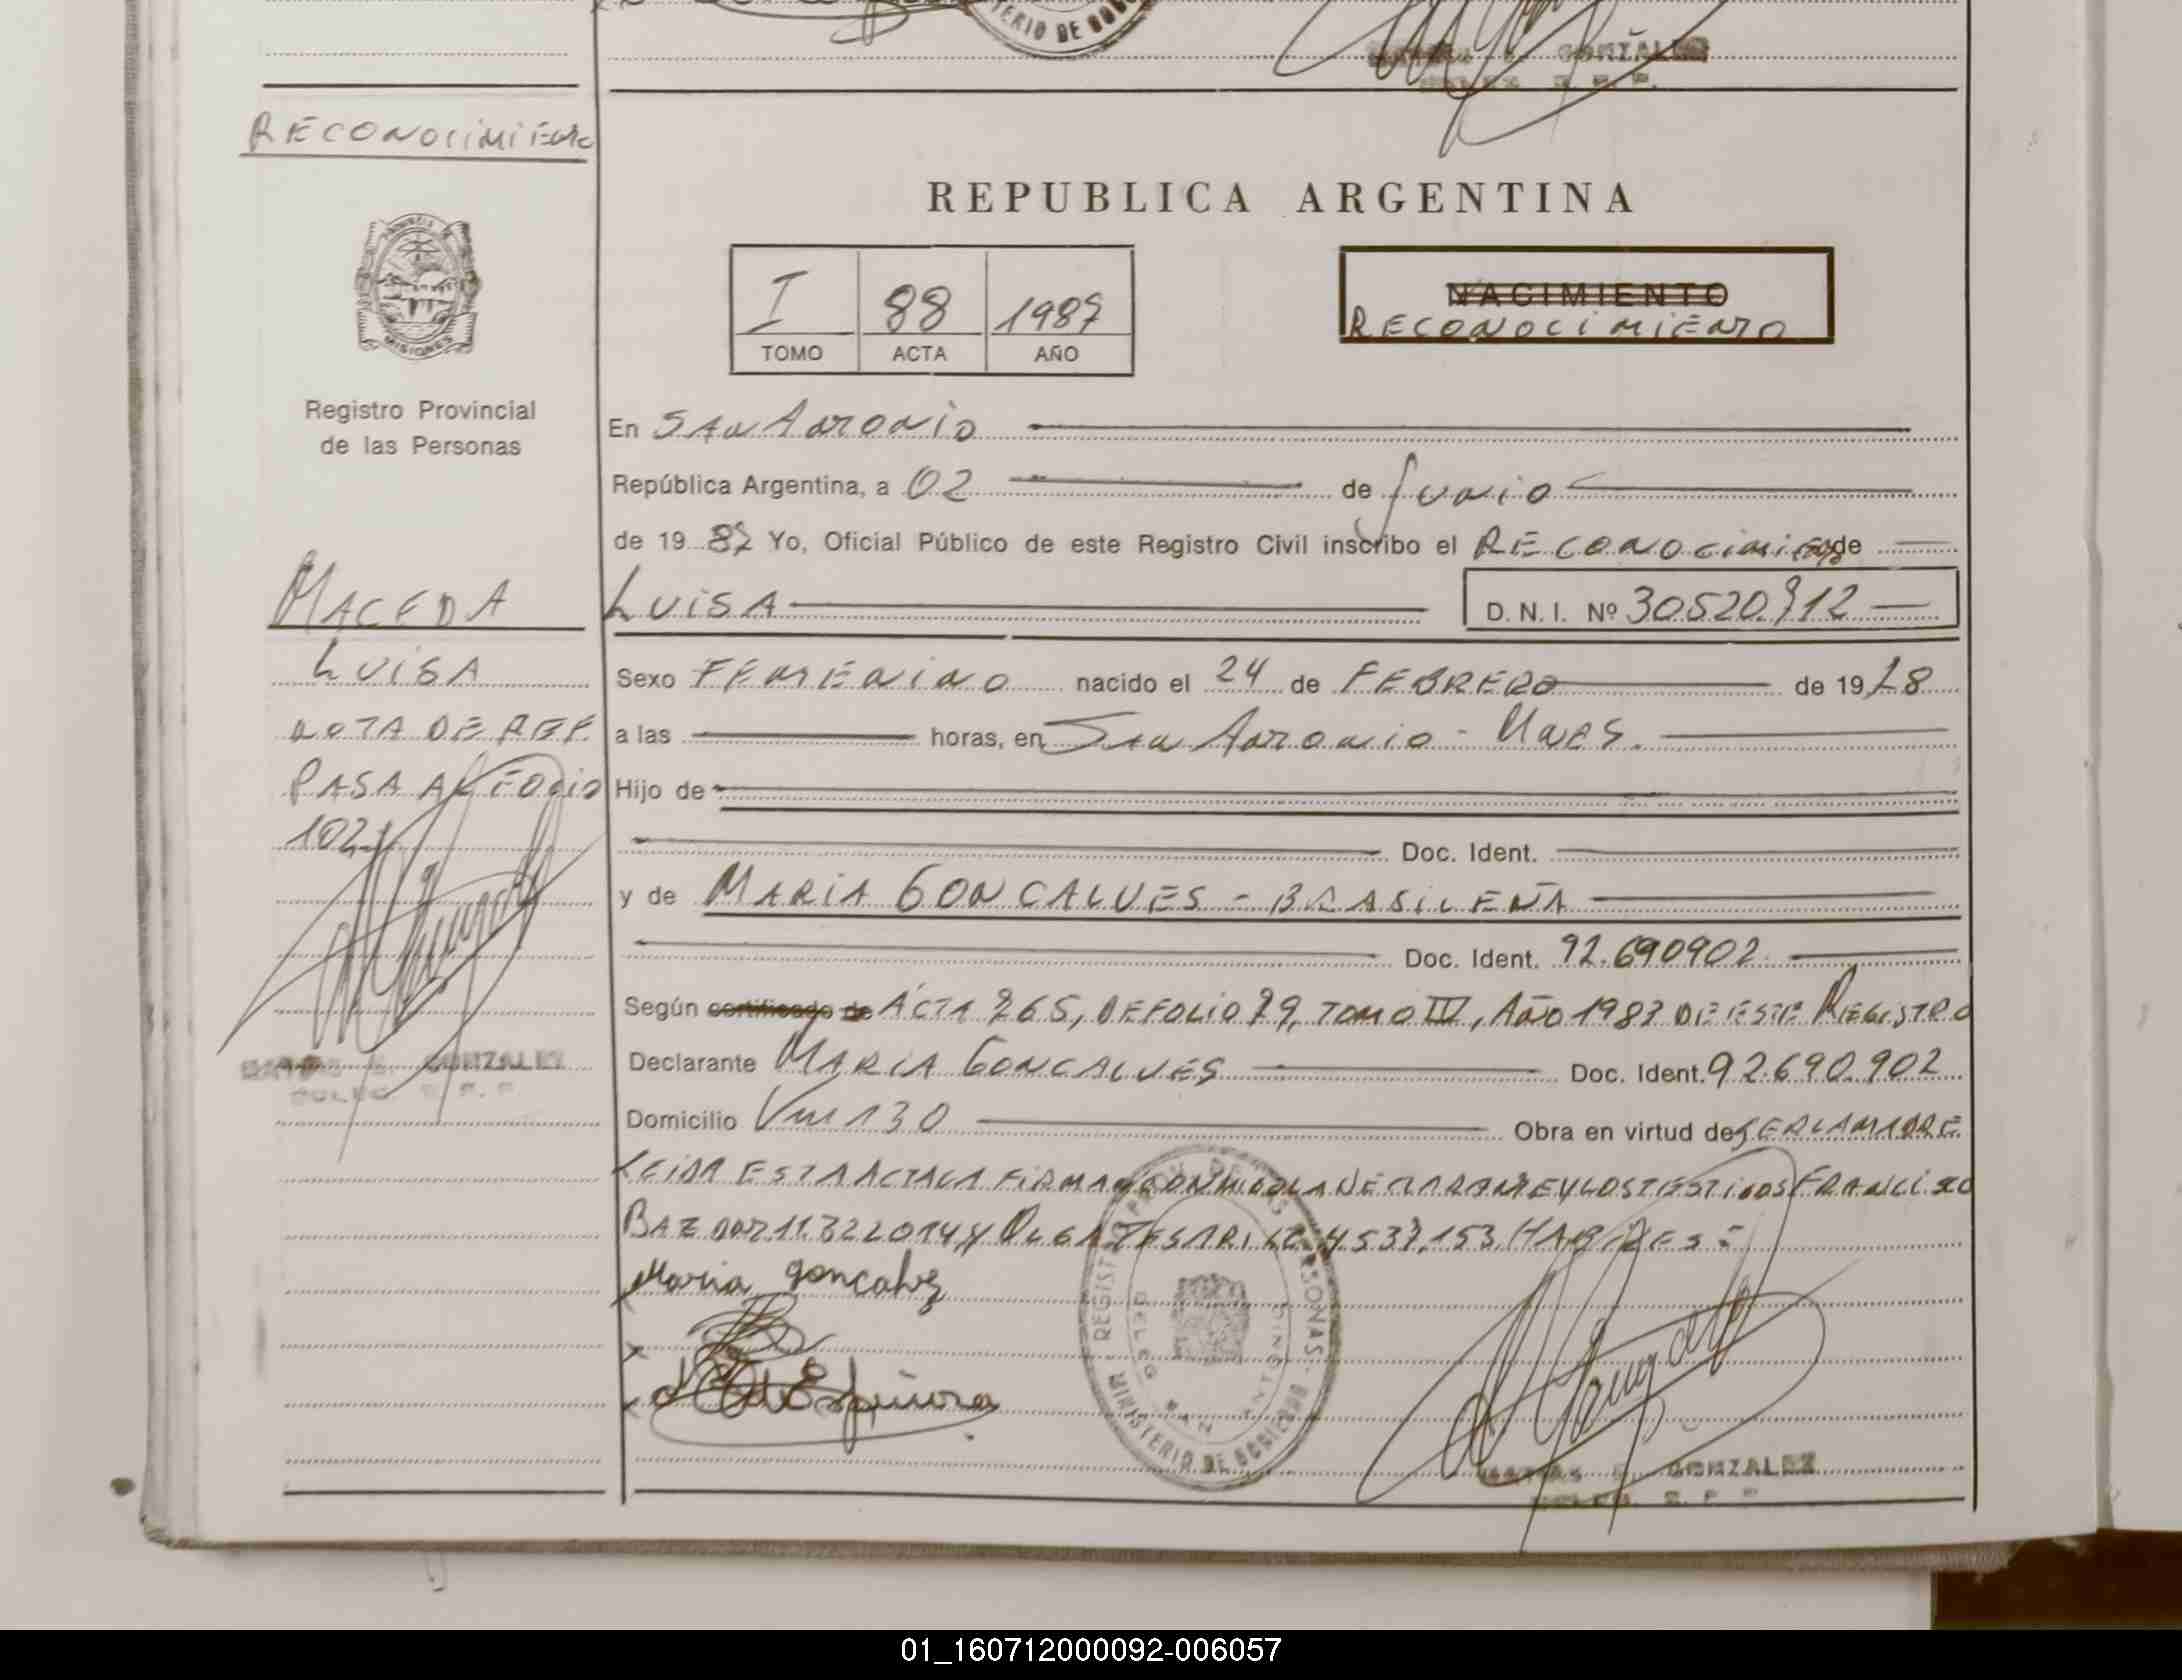 TERIO DE GOB
GONZALEZ
RECONOCIMIENTO
REPUBLICA ARGENTINA
PROVINCIA DE
MISIONES
I 88 1987
TOMO ACTA AÑO
NACIMIENTO
RECONOCIMIENTO
Registro Provincial
de las Personas
En SAN ANTONIO
República Argentina, a 02 de Junio
de 19 87 Yo, Oficial Público de este Registro Civil inscribo el RECONOCIMIENTO de
MACEDA
LUISA D. N. I. Nº
LUISA
Sexo FEMENINO nacido el 24 de FEBRERO de 19
NOTA DE REF.
a las horas, en San Antonio - Mnes.
PASA AL FOLIO
Hijo de
102
Doc. Ident.
y de MARIA GONCALVES - BRASILEÑA
Doc. Ident. 92.690902
Según certificado de ACTA 265, DE FOLIO 79, TOMO III, AÑO 1983 DE ESTE REGISTRO
GONZALEZ
Declarante MARIA GONCALVES Doc. Ident. 92.690.902
Domicilio Km 130 Obra en virtud de SER LA MADRE
LEIDA ESTA ACTA LA FIRMA CONMIGO LA DECLARANTE Y LOS TESTIGOS FRANCISCO
BAEZ DNI 11.322014 Y OLGA HABILES =
Maria goncalvez
Espinosa
REGISTRO PROV. DE LAS PERSONAS
MINISTERIO DE GOBIERNO
DELEG SAN ANTONIO
GONZALEZ
01_160712000092-006057